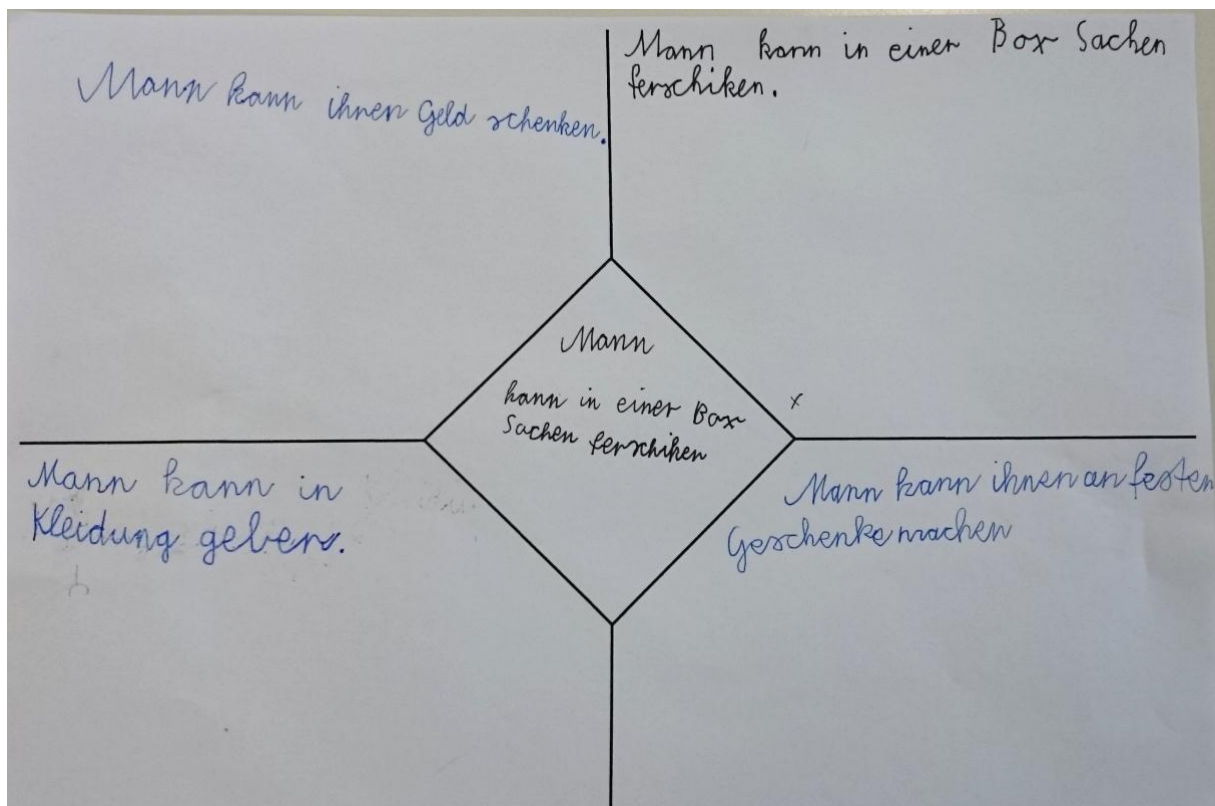 Mann kann ihnen Geld schenken.
Mann kann in einer Box Sachen
ferschiken.
Mann
kann in einer Box
Sachen ferschiken
x
Mann kann in
Kleidung geben.
Mann kann ihnen an festen
Geschenke machen